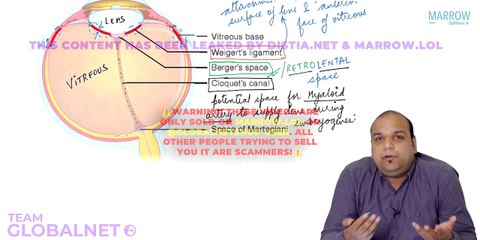 attachment
surface of lens & anterior
face of vitreous
MARROW
Edition 6
LENS
THIS CONTENT HAS BEEN LEAKED BY DISTIA.NET & MARROW.LOL
Vitreous base
Weigert's ligament
Berger's space / RETROLENTAL
space
VITREOUS
Cloquet's canal
potential space for Hyaloid
artery to supply lens during
embryogenesis
WARNING! THESE
ONLY SOLD
GLOBALNET
ALL
OTHER PEOPLE TRYING TO SELL
YOU IT ARE SCAMMERS!
Space of Martegiani
TEAM
GLOBALNET